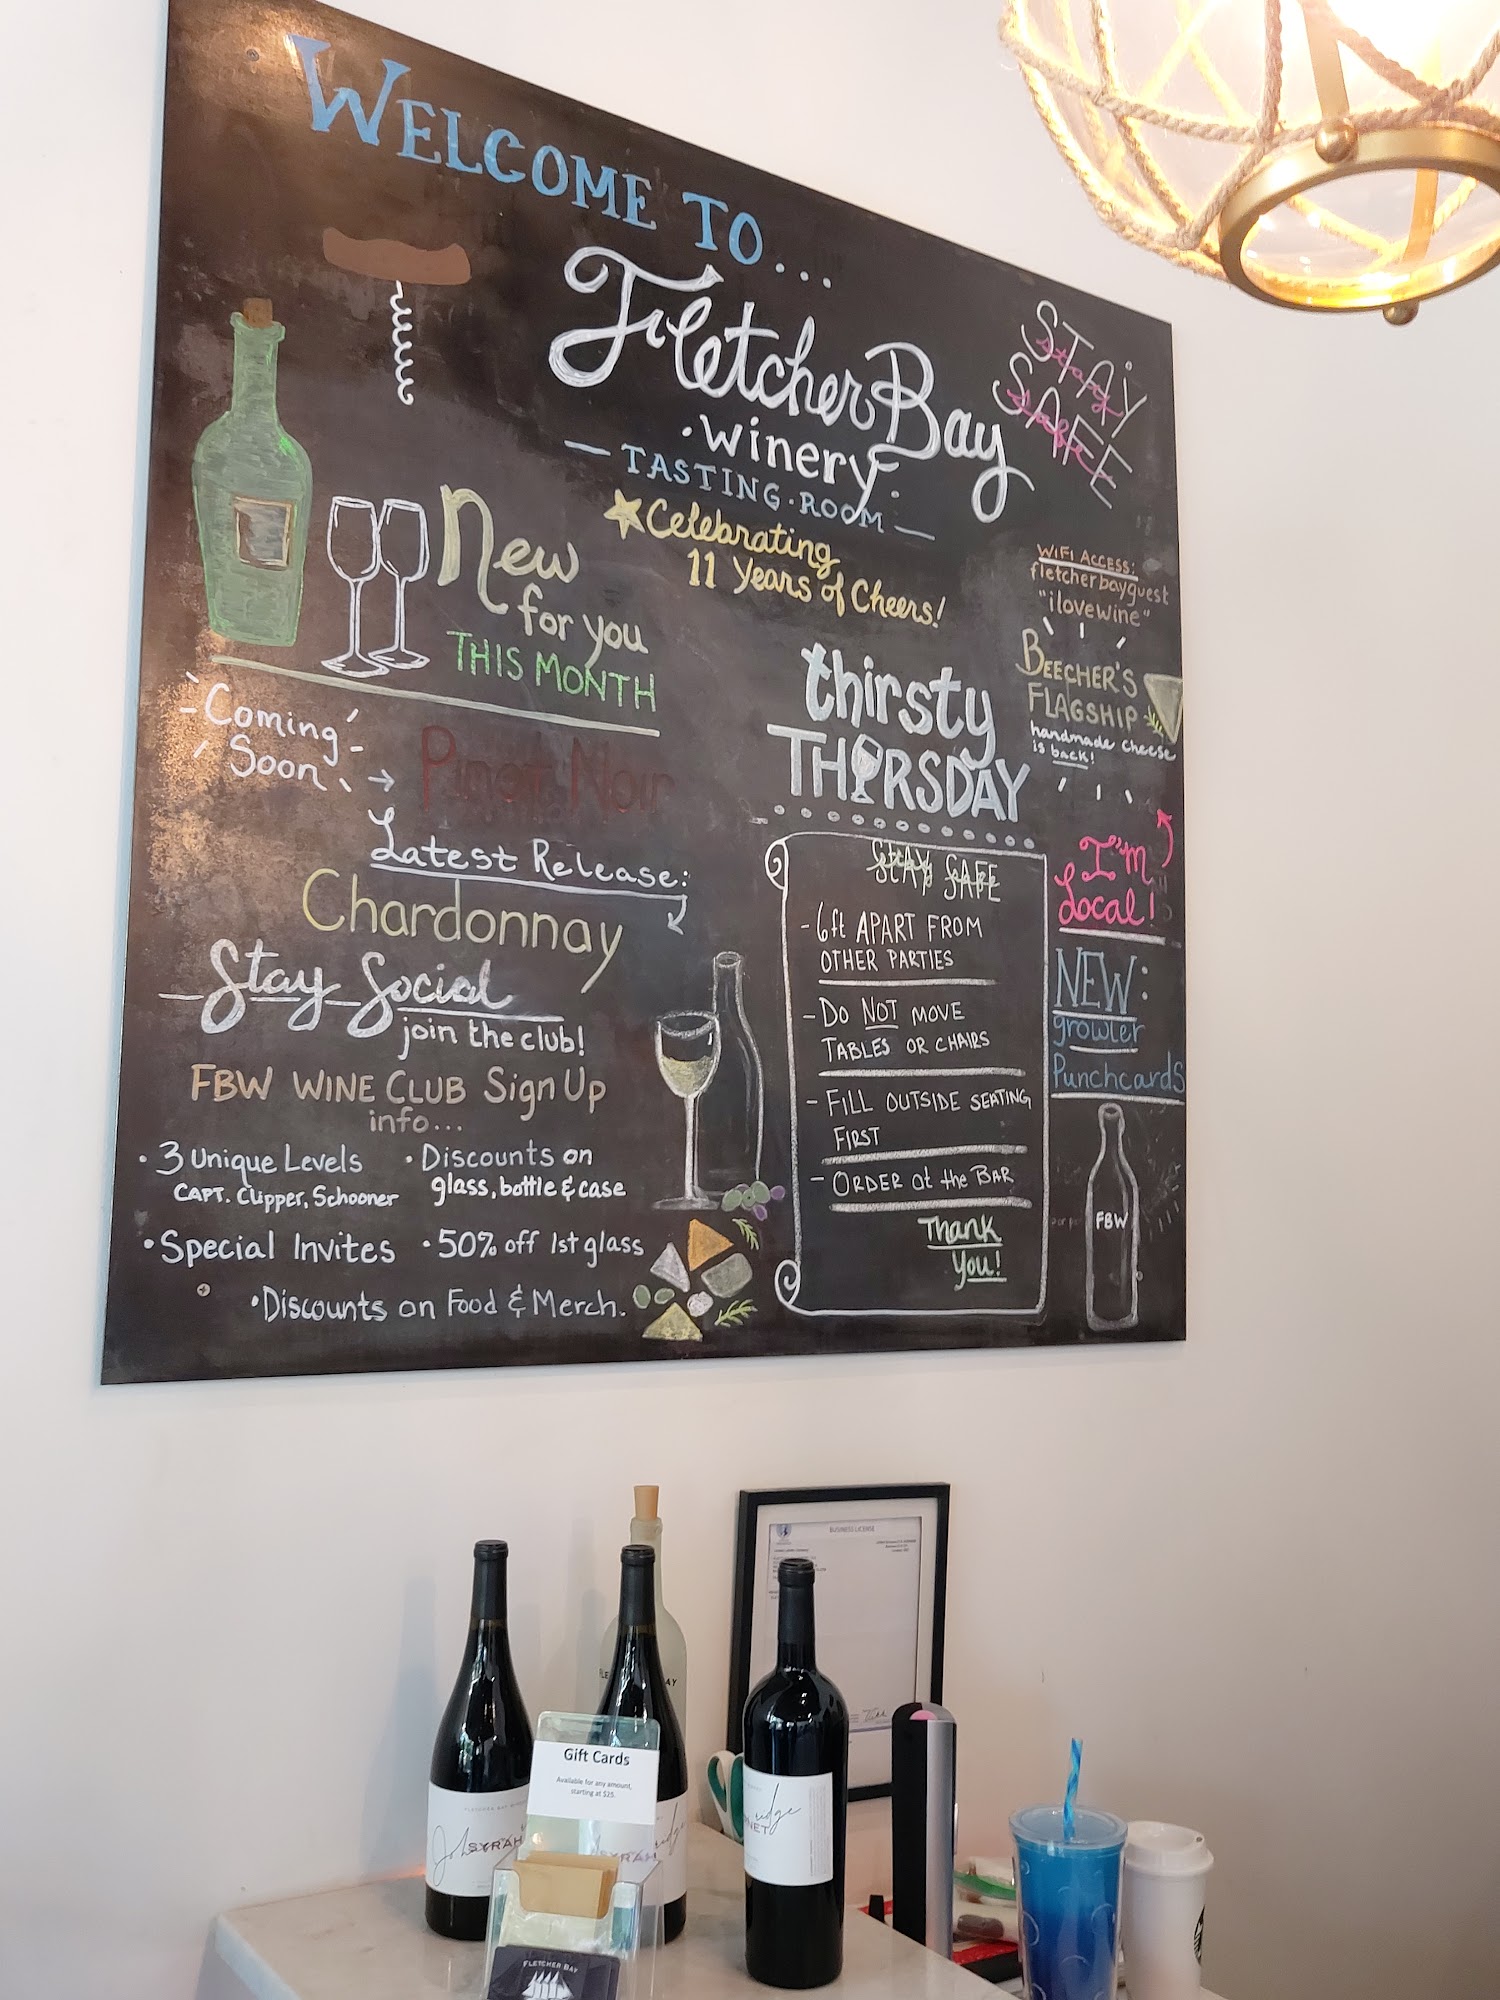 WELCOME TO...
Fletcher Bay
·Winery·
— TASTING·ROOM —
Celebrating
11 Years of Cheers!
STAY
SAFE
New
for you
THIS MONTH
Coming
Soon
Pinot Noir
Latest Release:
Chardonnay
Stay Social
join the club!
FBW WINE CLUB Sign Up
info...
· 3 Unique Levels
CAPT. Clipper, Schooner
· Discounts on
glass, bottle & case
· Special Invites
· 50% off 1st glass
· Discounts on Food & Merch.
WIFI ACCESS:
fletcherbayguest
"ilovewine"
BEECHER'S
FLAGSHIP
handmade cheese
is back!
I'm
Local!
NEW:
growler
Punchcards
FBW
thirsty
THIRSDAY
STAY SAFE
- 6ft APART FROM
OTHER PARTIES
- DO NOT MOVE
TABLES OR CHAIRS
- FILL OUTSIDE SEATING
FIRST
- ORDER at the BAR
Thank
You!
BUSINESS LICENSE
Gift Cards
Available for any amount,
starting at $25.
FLETCHER BAY WINERY
SYRAH
SYRAH
FLETCHER BAY